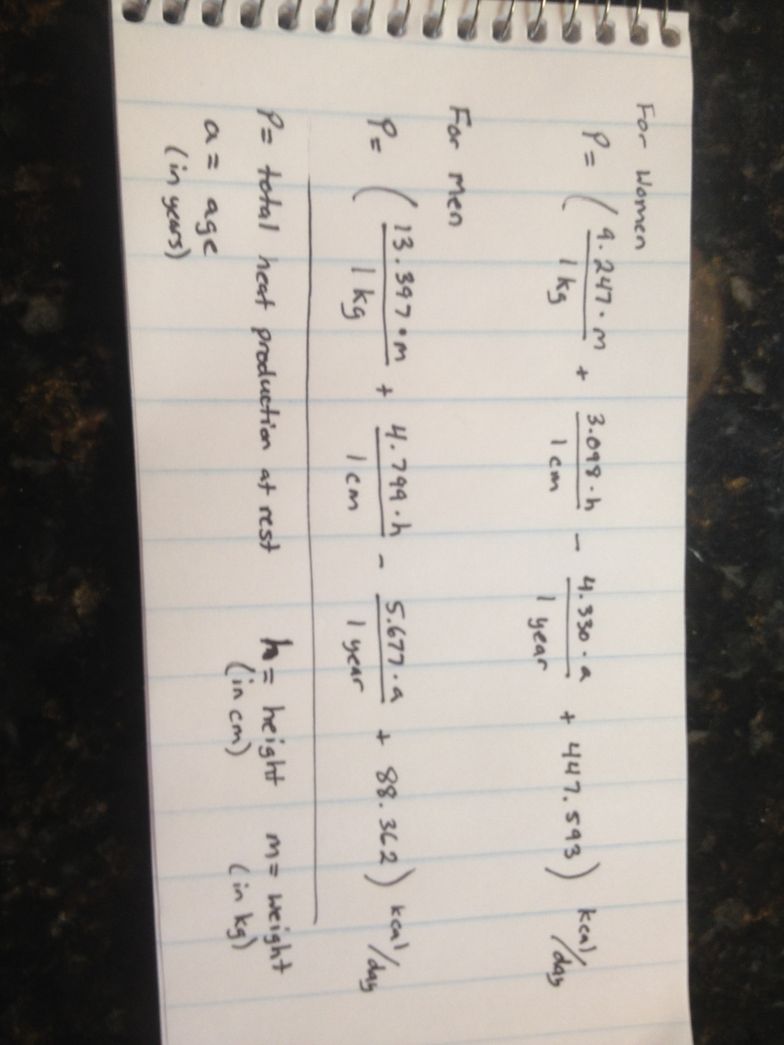 For Women
P = ( 9.247 · m / 1 kg + 3.098 · h / 1 cm - 4.330 · a / 1 year + 447.593 ) kcal/day
For Men
P = ( 13.397 · m / 1 kg + 4.799 · h / 1 cm - 5.677 · a / 1 year + 88.362 ) kcal/day
P = total heat production at rest h = height m = weight
(in cm) (in kg)
a = age
(in years)